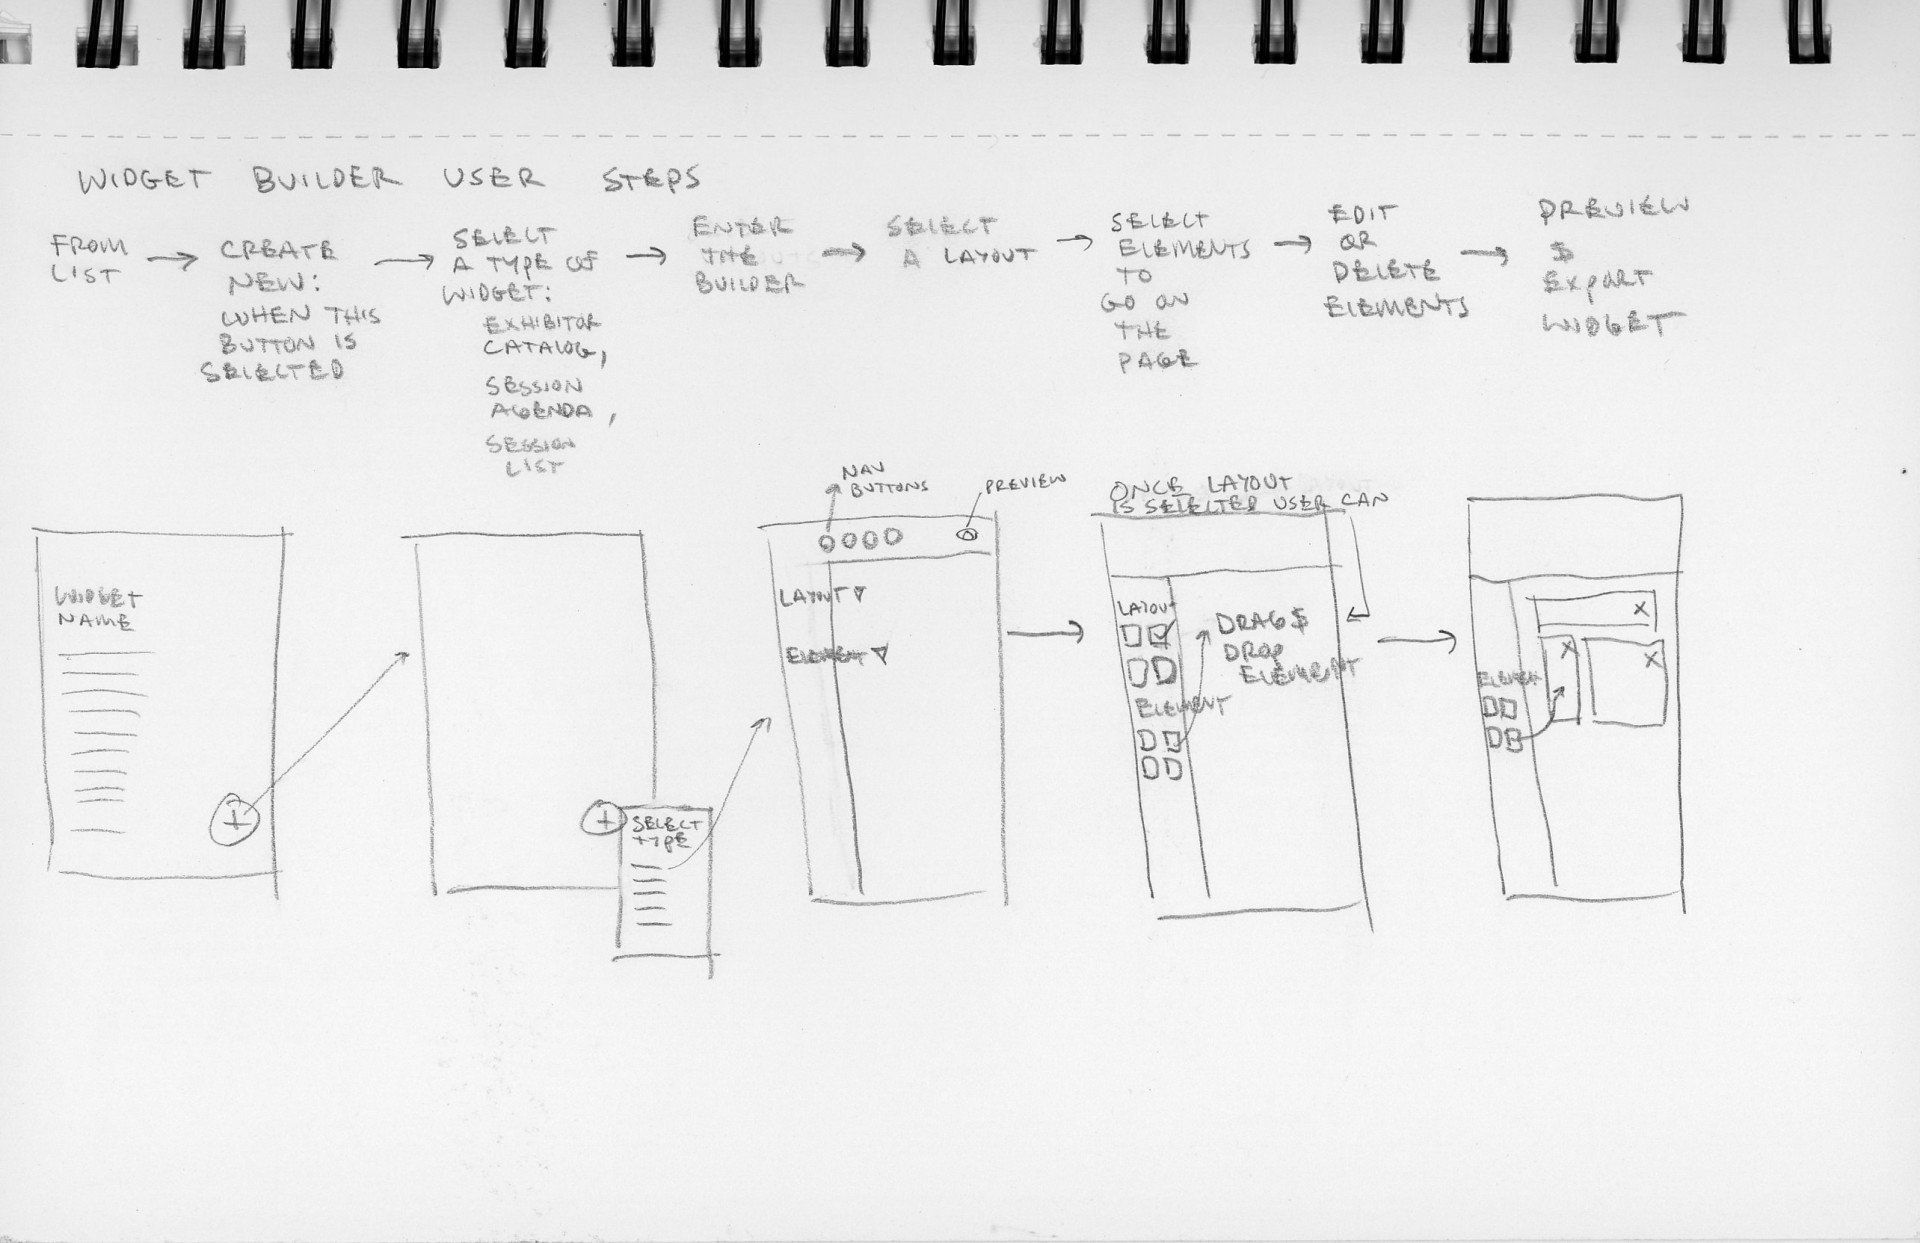 WIDGET BUILDER USER STEPS
FROM
LIST
CREATE
NEW:
WHEN THIS
BUTTON IS
SELECTED
SELECT
A TYPE OF
WIDGET:
EXHIBITOR
CATALOG,
SESSION
AGENDA,
SESSION
LIST
ENTER
THE
BUILDER
SELECT
A LAYOUT
SELECT
ELEMENTS
TO
GO ON
THE
PAGE
EDIT
OR
DELETE
ELEMENTS
PREVIEW
$
EXPORT
WIDGET
WIDGET
NAME
+
+
SELECT
TYPE
NAV
BUTTONS
PREVIEW
LAYOUT
ELEMENT
ONCE LAYOUT
IS SELECTED USER CAN
LAYOUT
DRAG $
DROP
ELEMENT
ELEMENT
X
X
X
ELEMENT